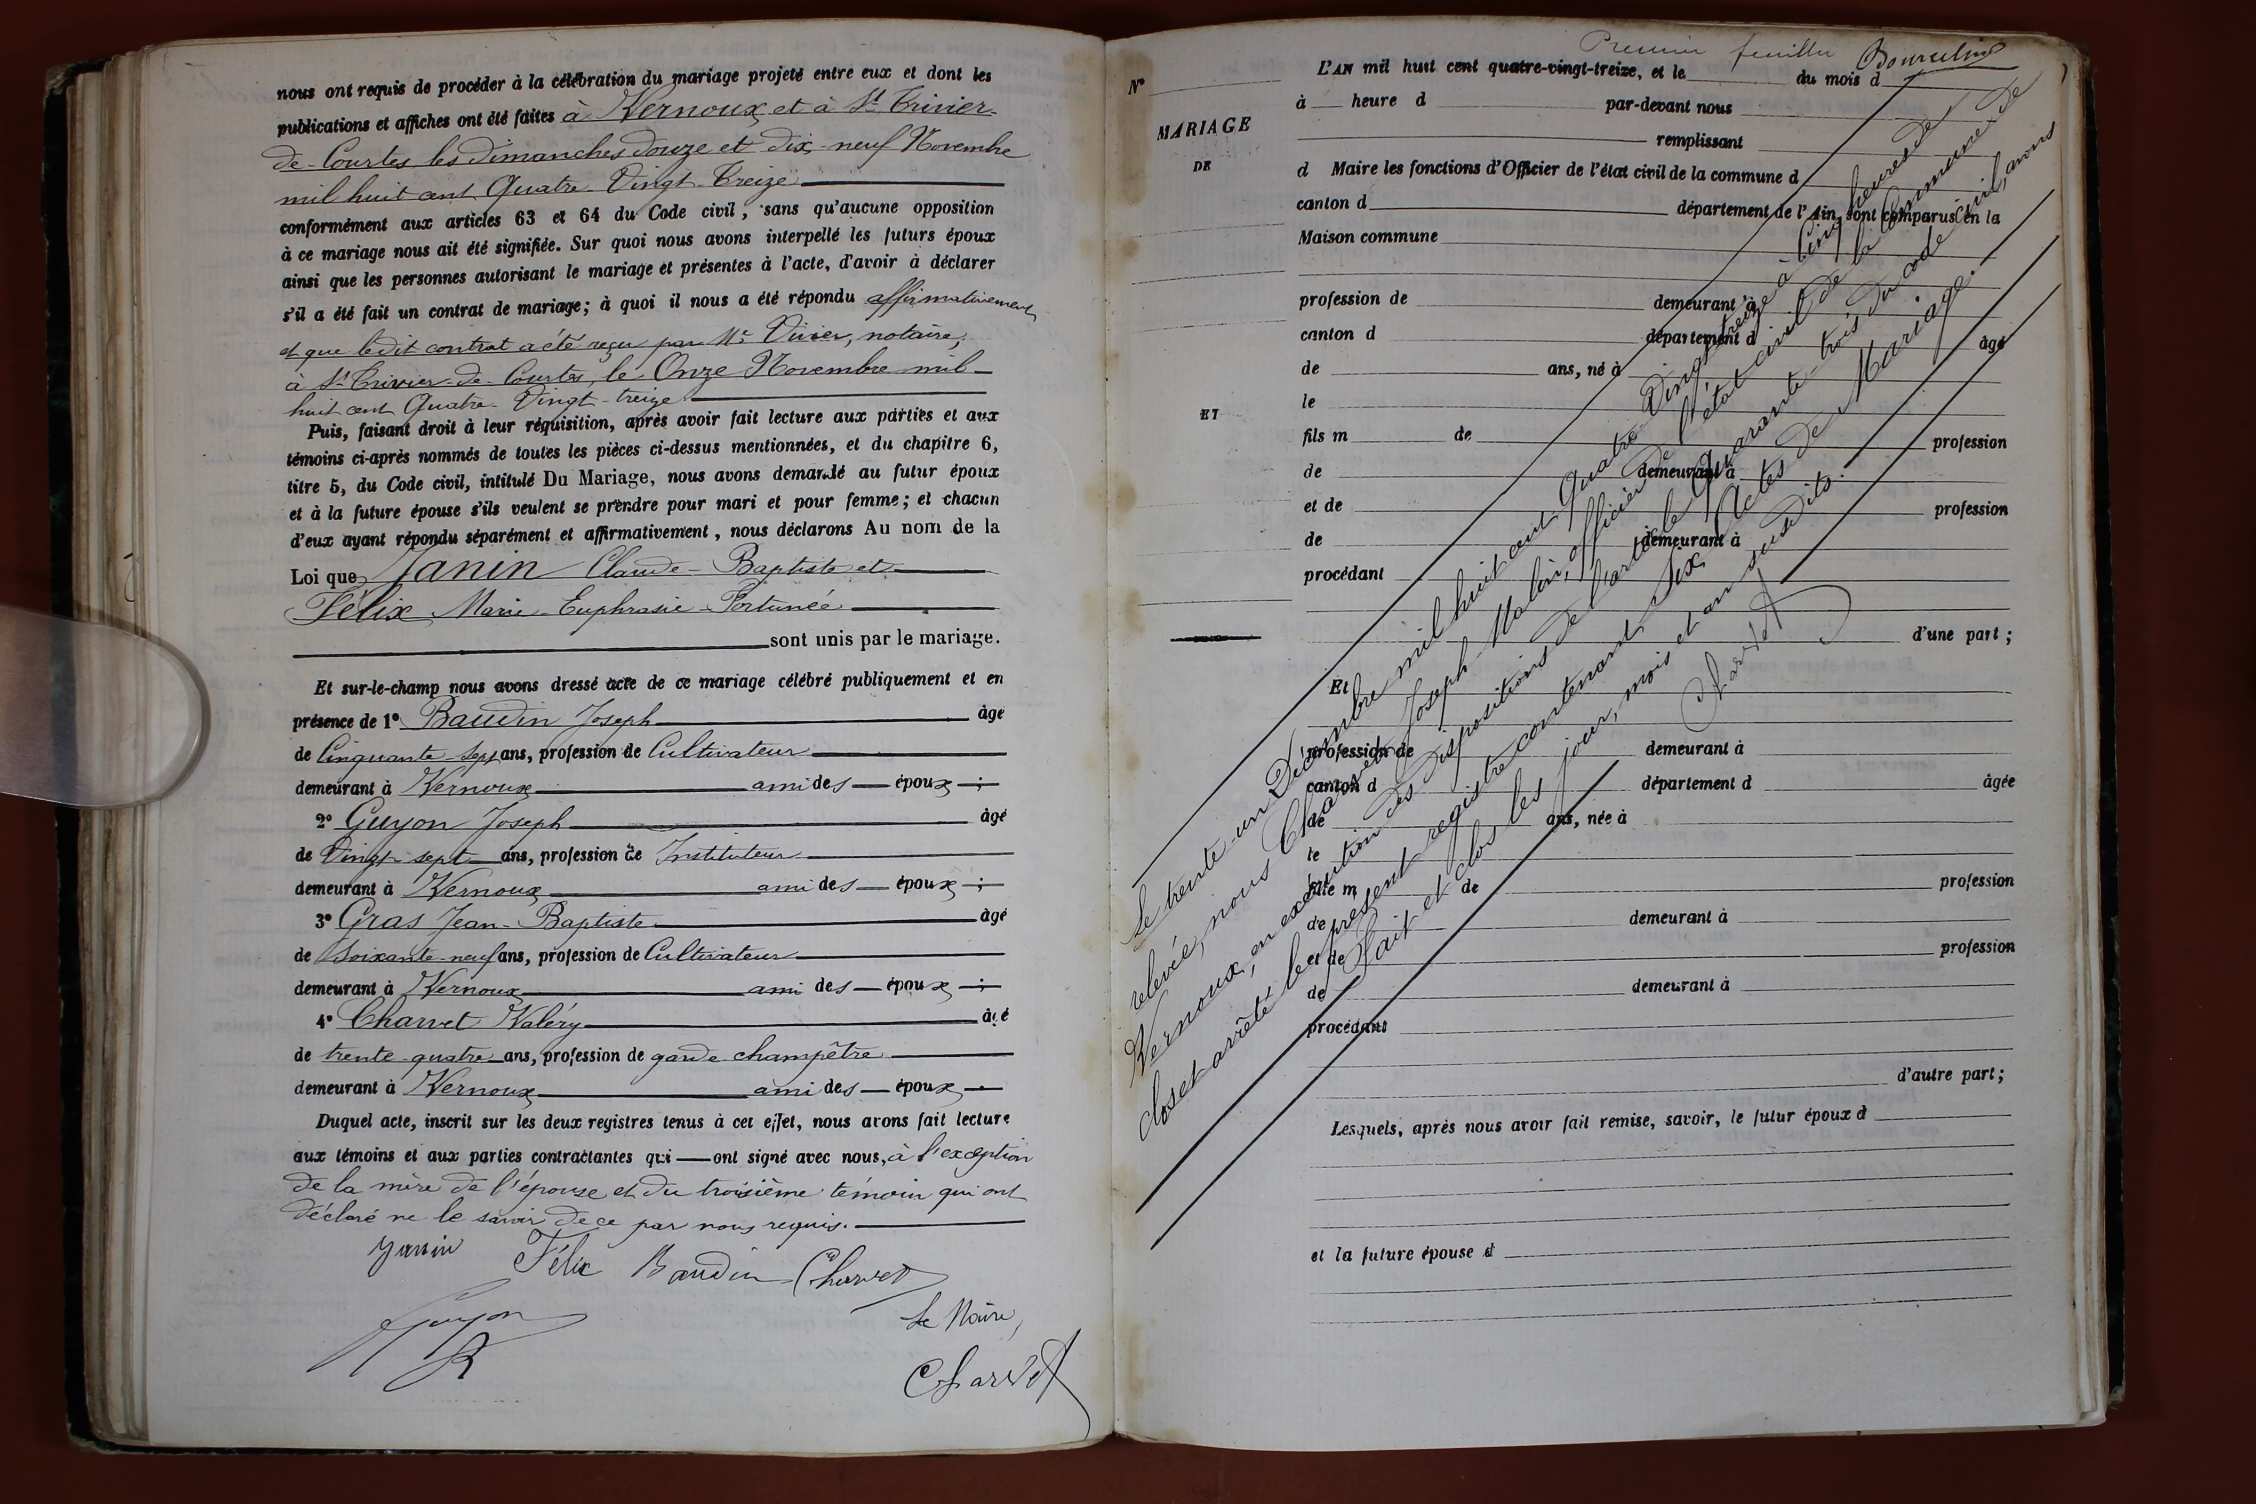 nous ont requis de procéder à la célébration du mariage projeté entre eux et dont les
publications et affiches ont été faites à Vernoux et à St Trivier-
de-Courtes les dimanches douze et dix-neuf Novembre
mil huit cent Quatre-Vingt-Treize
conformément aux articles 63 et 64 du Code civil, sans qu'aucune opposition
à ce mariage nous ait été signifiée. Sur quoi nous avons interpellé les futurs époux
ainsi que les personnes autorisant le mariage et présentes à l'acte, d'avoir à déclarer
s'il a été fait un contrat de mariage; à quoi il nous a été répondu affirmativement
et que ledit contrat a été reçu par Me Vivier, notaire,
à St Trivier-de-Courtes, le Onze Novembre mil
huit cent Quatre-Vingt-treize
Puis, faisant droit à leur réquisition, après avoir fait lecture aux parties et aux
témoins ci-après nommés de toutes les pièces ci-dessus mentionnées, et du chapitre 6,
titre 5, du Code civil, intitulé Du Mariage, nous avons demandé au futur époux
et à la future épouse s'ils veulent se prendre pour mari et pour femme; et chacun
d'eux ayant répondu séparément et affirmativement, nous déclarons Au nom de la
Loi que Janin Claude-Baptiste et
Félix Marie-Euphrasie-Fortunée
sont unis par le mariage.
Et sur-le-champ nous avons dressé acte de ce mariage célébré publiquement et en
présence de 1° Baudin Joseph âgé
de Cinquante-sept ans, profession de Cultivateur
demeurant à Vernoux ami des époux ;
2° Guyon Joseph âgé
de Vingt-sept ans, profession de Instituteur
demeurant à Vernoux ami des époux ;
3° Gras Jean-Baptiste âgé
de Soixante-neuf ans, profession de Cultivateur
demeurant à Vernoux ami des époux ;
4° Charvet Valéry âgé
de trente-quatre ans, profession de garde champêtre
demeurant à Vernoux ami des époux.
Duquel acte, inscrit sur les deux registres tenus à cet effet, nous avons fait lecture
aux témoins et aux parties contractantes qui ont signé avec nous, à l'exception
de la mère de l'épouse et du troisième témoin qui ont
déclaré ne le savoir de ce par nous requis.
Janin Félix Baudin Charvet
Guyon
Le Maire,
Charvet
Premier feuillet
N°
MARIAGE
DE
ET
L'AN mil huit cent quatre-vingt-treize, et le du mois d
à heure d par-devant nous
remplissant
d Maire les fonctions d'Officier de l'état civil de la commune d
canton d département de l'Ain, sont comparus en la
Maison commune
profession de demeurant à
canton d département d âgé
de ans, né à
le
fils m de profession
de demeurant à
et de profession
de demeurant à
procédant
d'une part;
Et
profession de demeurant à
canton d département d âgée
de ans, née à
le
fille m de profession
de demeurant à
et de profession
de demeurant à
procédant
d'autre part;
Lesquels, après nous avoir fait remise, savoir, le futur époux d
et la future épouse d
Le trente-un Décembre mil huit cent Quatre-Vingt-treize à Cinq heures de
relevée, nous Charvet Joseph-Malin, officier de l'état civil de la Commune de
Vernoux, en exécution des dispositions de l'article Quarante-trois du code civil, avons
clos et arrêté le présent registre contenant Six Actes de Mariage.
Fait et clos les jour, mois et an susdits.
Charvet